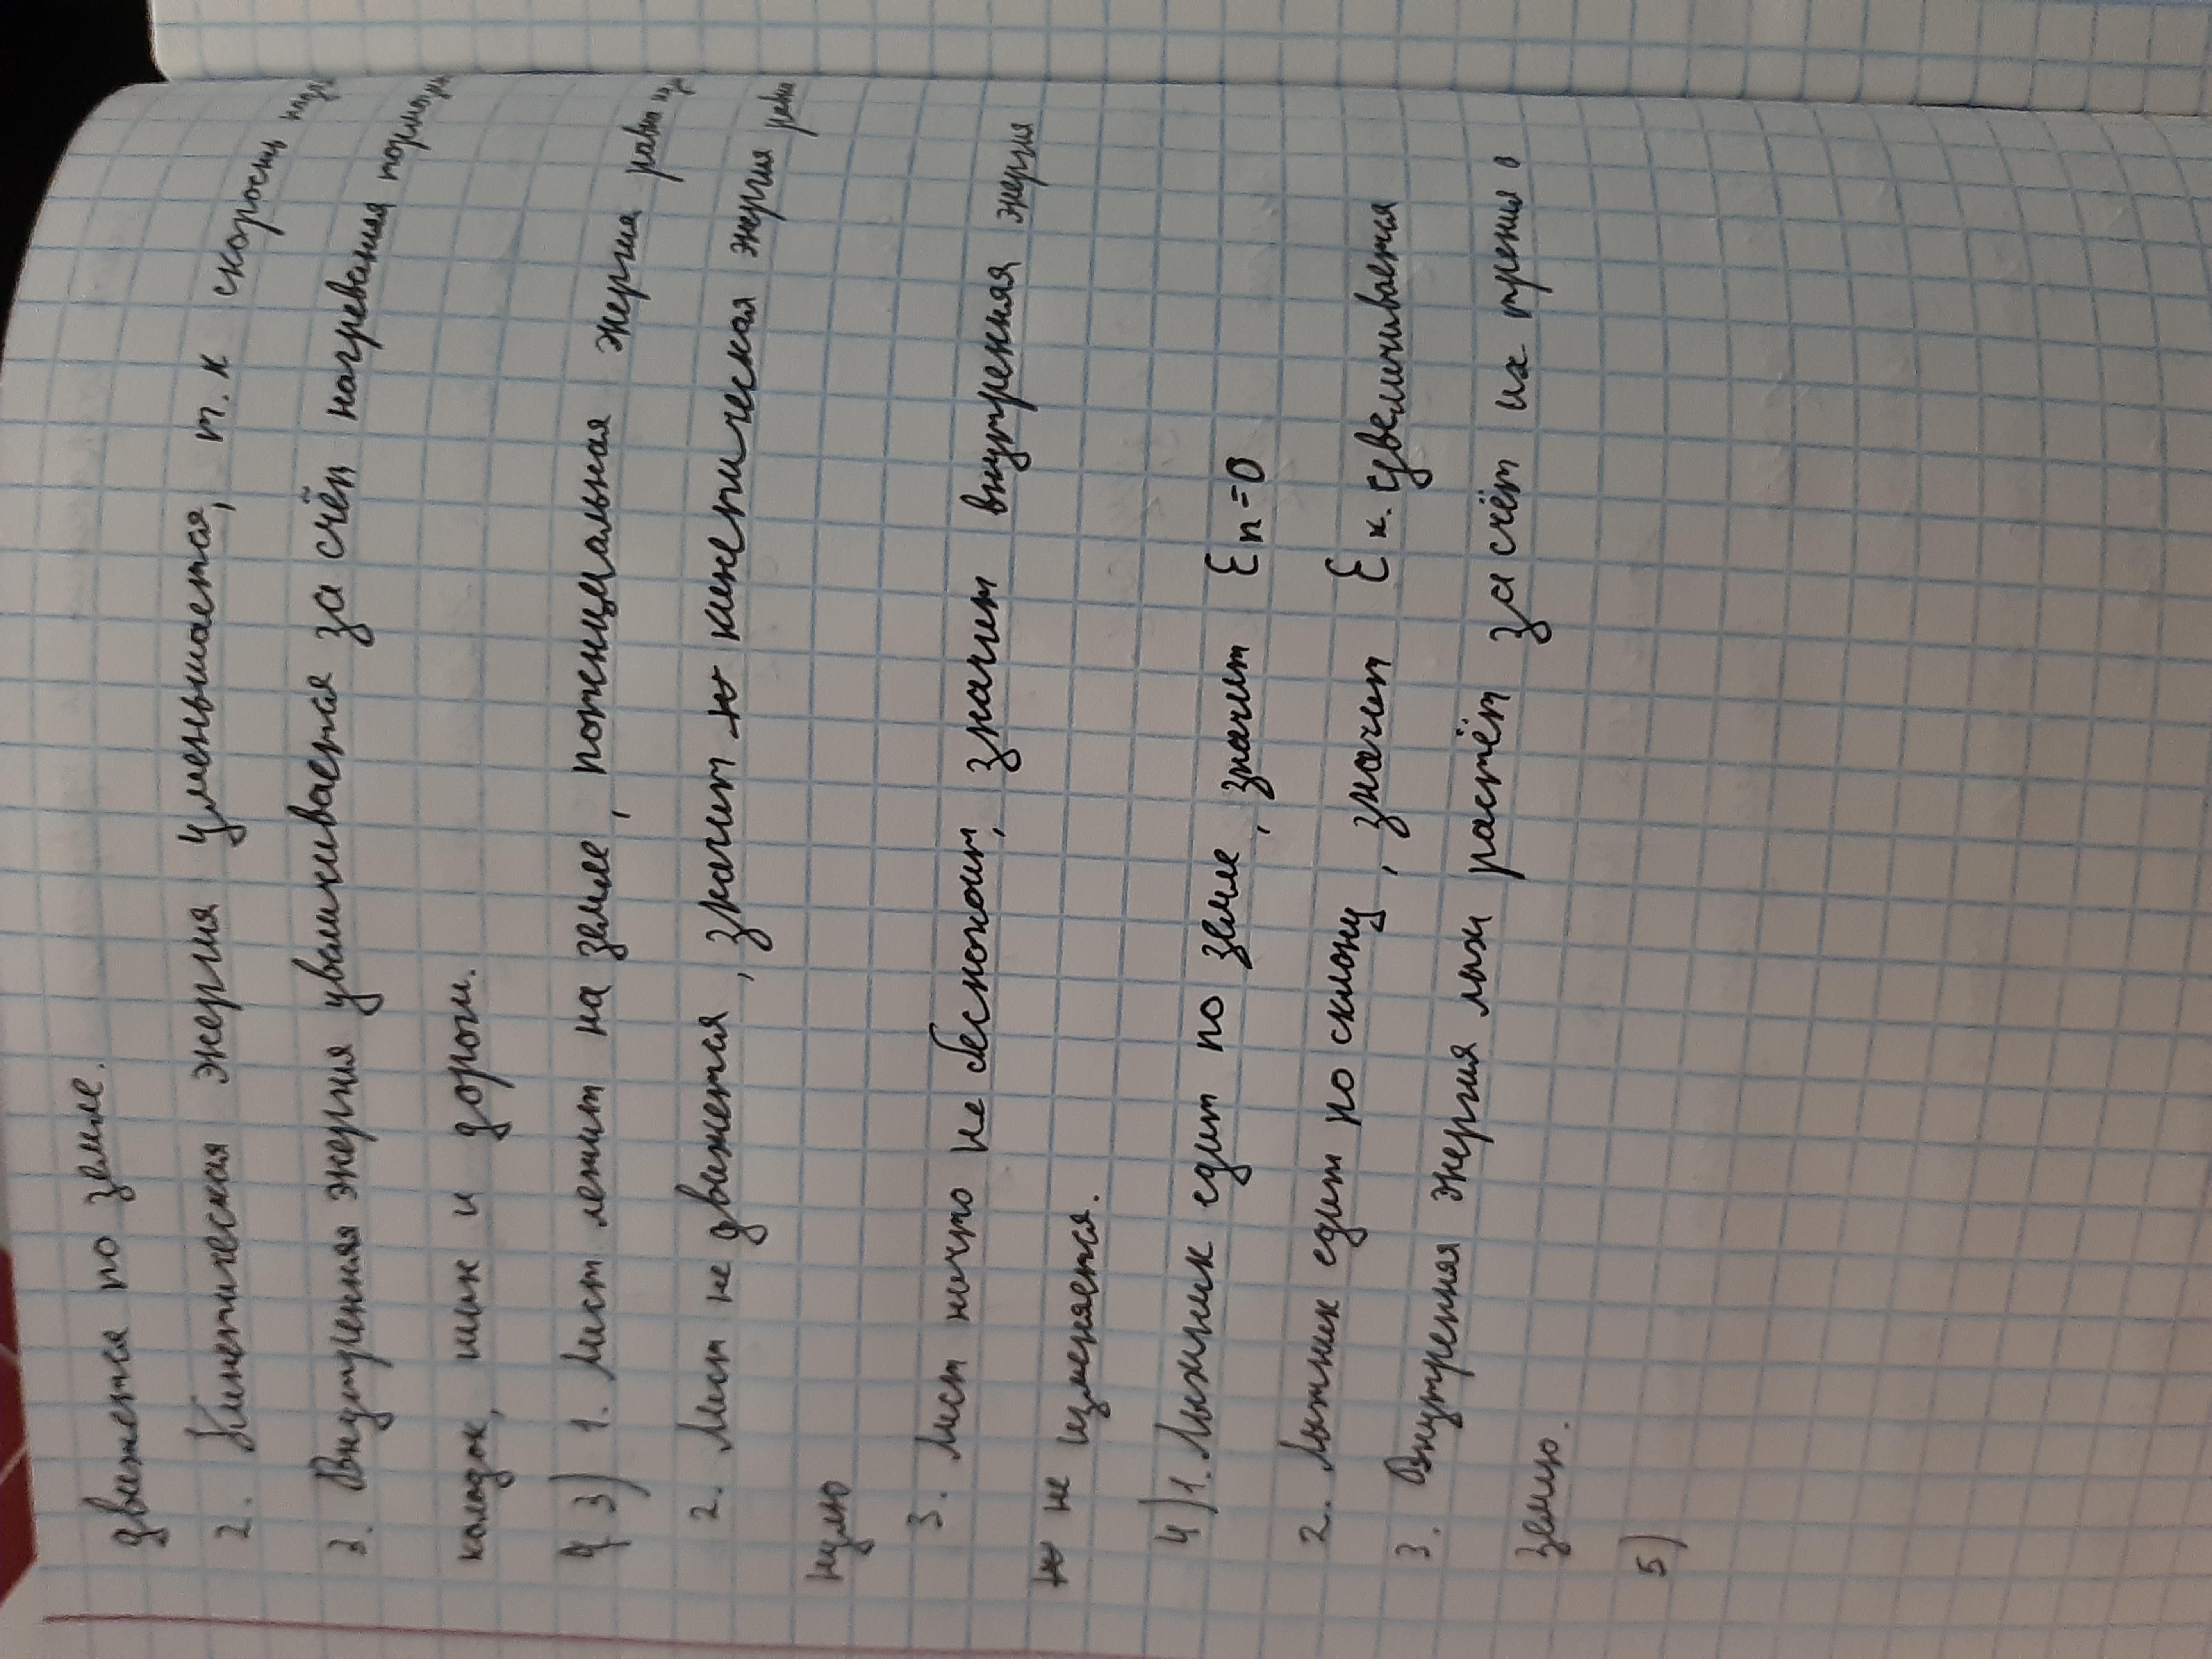 движется по земле.
2. Кинетическая энергия уменьшается, т.к скорость
3. Внутренняя энергия увеличивается за счёт нагревания
колодок, шин и дороги.
3) 1. Лист лежит на земле, потенциальная энергия
2. Лист не движется, значит кинетическая энергия
нулю
3. Лист ничто не беспокоит, значит внутренняя энергия
не изменяется.
4) 1. Лыжник едит по земле, значит Eп=0
2. Лыжник едит по склону, значит Eк. увеличивается
3. Внутренняя энергия лыж растёт за счёт их трения о
землю.
5)